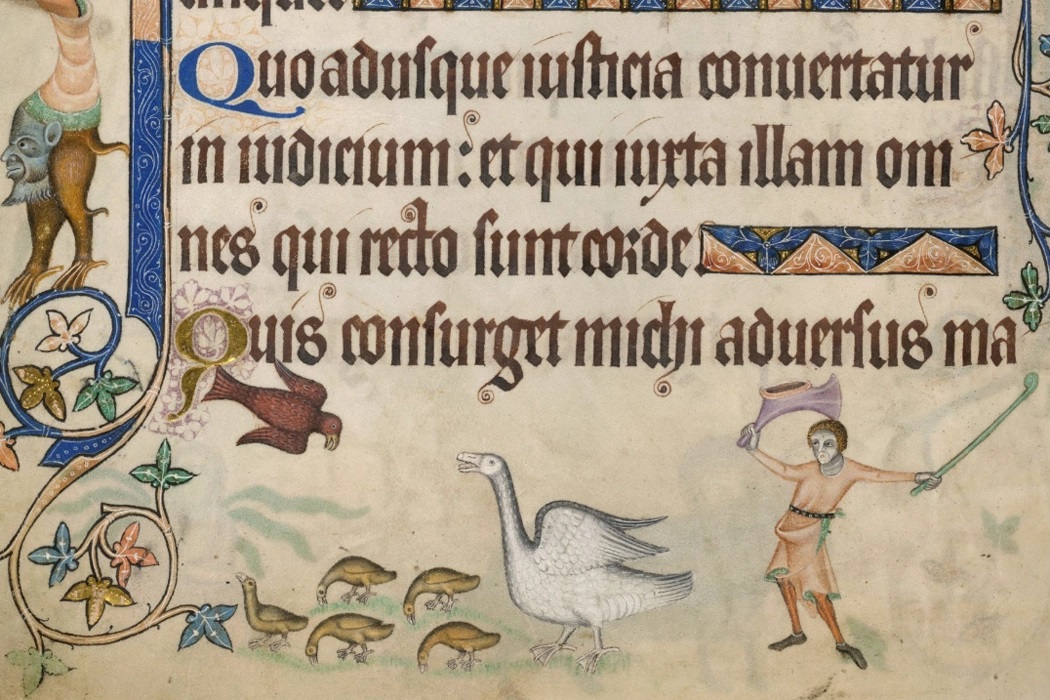 Quo adusque iusticia conuertatur
in iudicium: et qui iuxta illam om
nes qui recto sunt corde.
Quis consurget michi aduersus ma